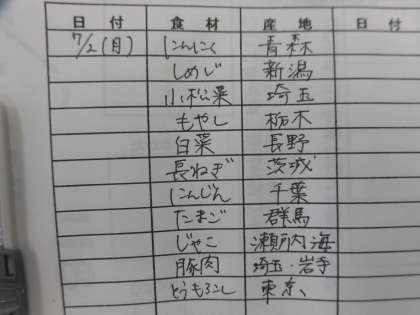 日付 食材 産地 日付
7/2(月) にんにく 青森
しめじ 新潟
小松菜 埼玉
もやし 栃木
白菜 長野
長ねぎ 茨城
にんじん 千葉
たまご 群馬
じゃこ 瀬戸内海
豚肉 埼玉・岩手
とうもろこし 東京